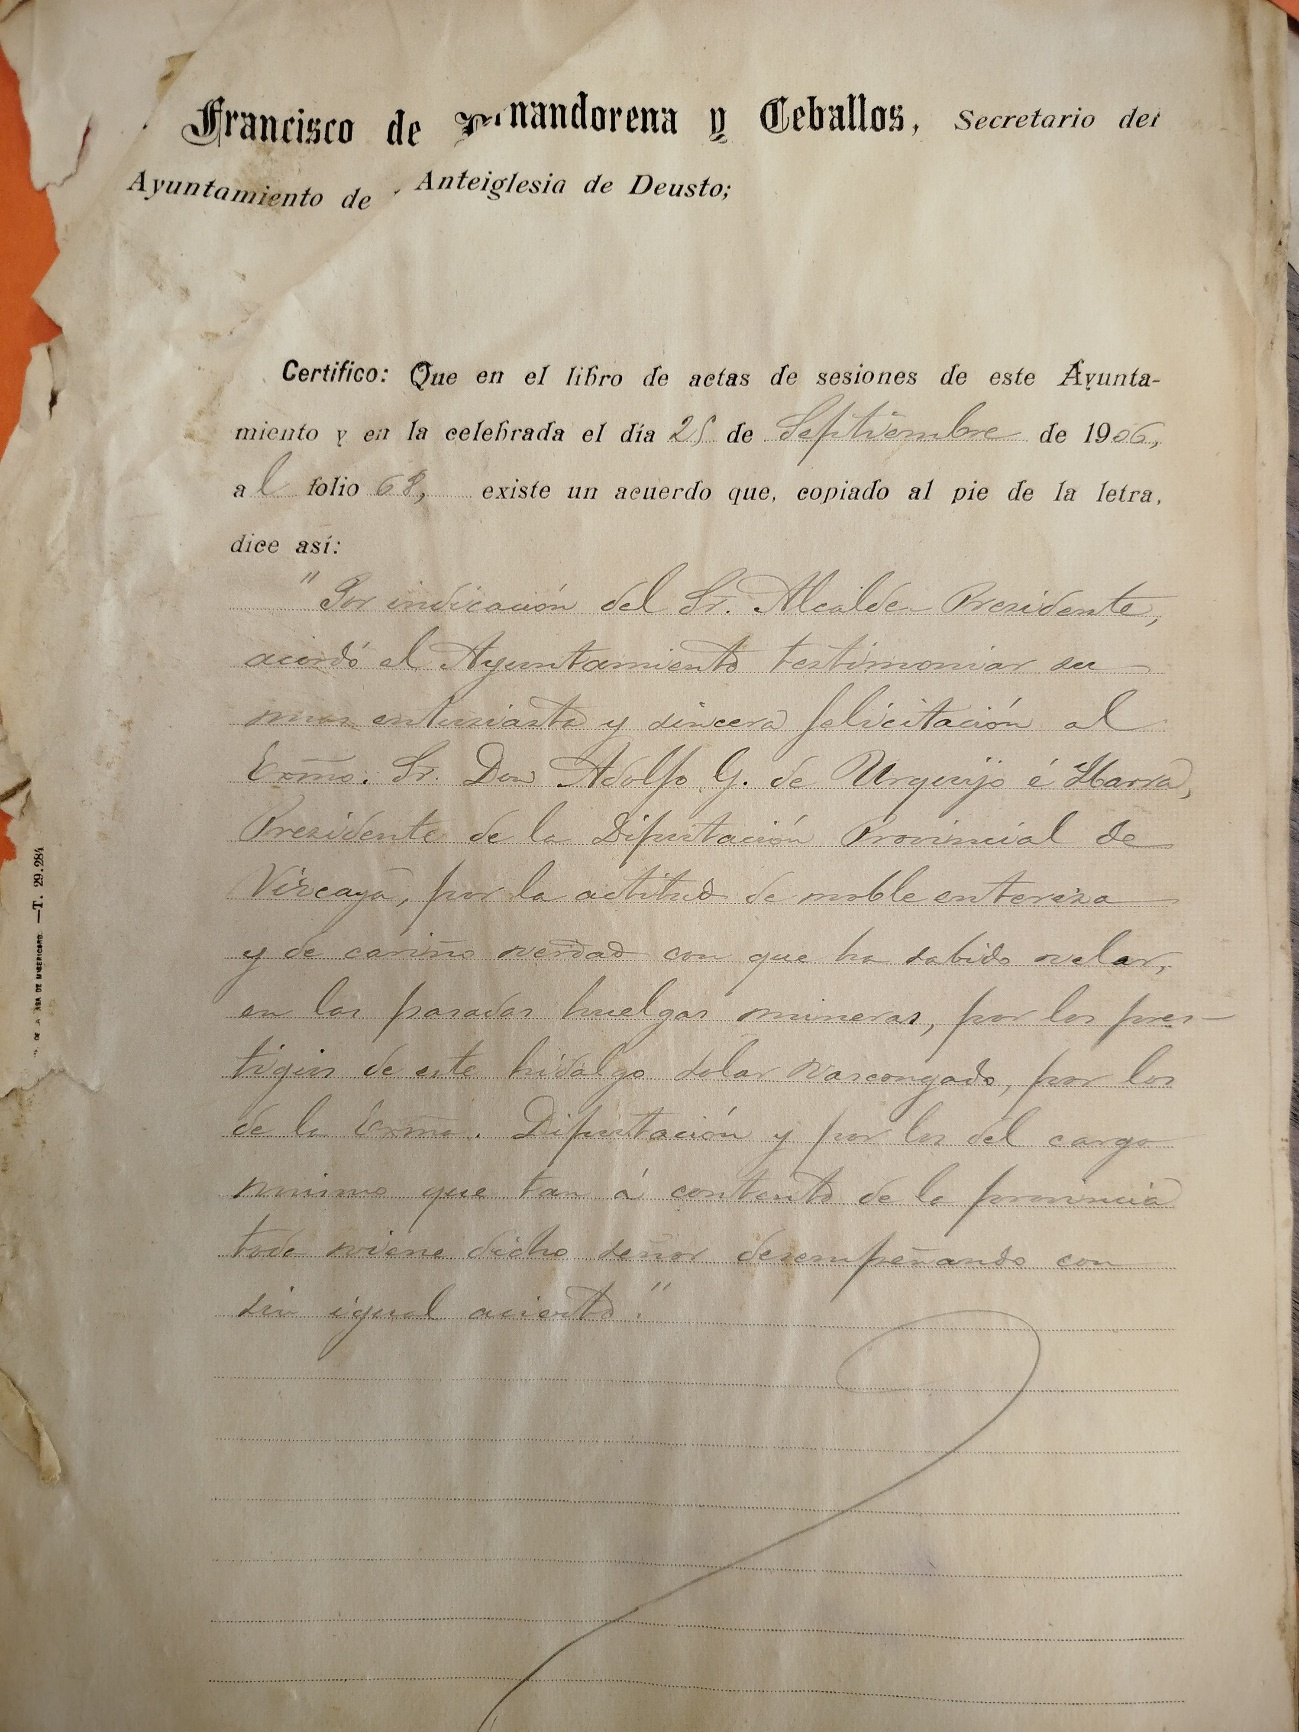 Francisco de nandorena y Ceballos, Secretario del
Ayuntamiento de Anteiglesia de Deusto;
Certifico: Que en el libro de actas de sesiones de este Ayunta-
miento y en la celebrada el día 25 de Septiembre de 1906,
al folio 68, existe un acuerdo que, copiado al pie de la letra,
dice así:
"Por indicación del Sr. Alcalde-Presidente,
acordó el Ayuntamiento testimoniar su
mas entusiasta y sincera felicitación al
Excmo. Sr. Don Adolfo G. de Urquijo é Ibarra,
Presidente de la Diputación Provincial de
Vizcaya, por la actitud de noble entereza
y de cariño verdad con que ha sabido velar,
en las pasadas huelgas mineras, por los pres-
tigios de este hidalgo solar vascongado, por los
de la Excma. Diputación y por los del cargo
mismo que tan á contento de la provincia
toda viene dicho señor desempeñando con
sin igual acierto."
DE MISERICORD. —T. 29.284